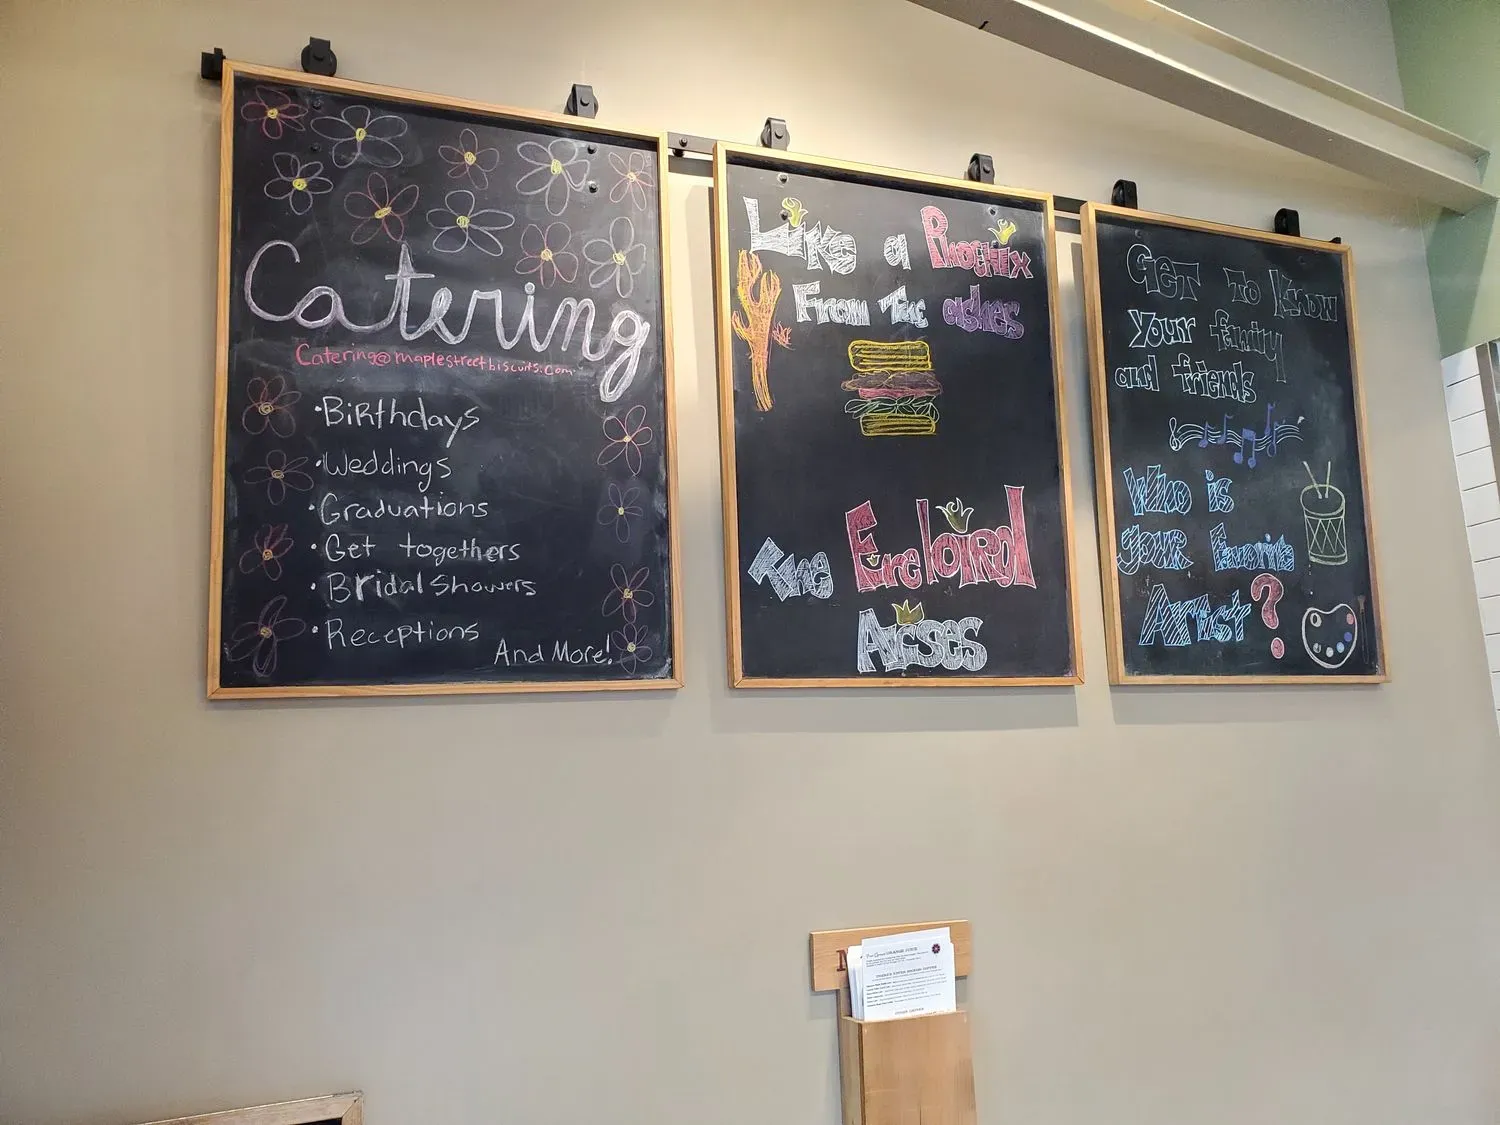 Catering
Catering@maplestreetbiscuits.com
•Birthdays
•Weddings
•Graduations
•Get togethers
•Bridal Showers
•Receptions
And More!
Like a Phoenix
From The ashes
the Firebird
Arises
Get To Know
Your family
and friends
Who is
your Favorite
Artist?
M